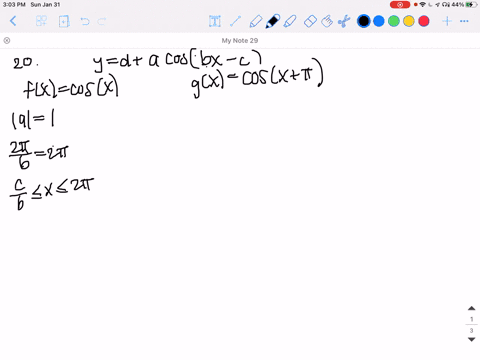 3:03 PM Sun Jan 31
44%
My Note 29
20. y=d+a cos(bx-c)
f(x)=cos(x) g(x)=cos(x+π)
|a|=1
2π/b=2π
c/b ≤ x ≤ 2π
1
3